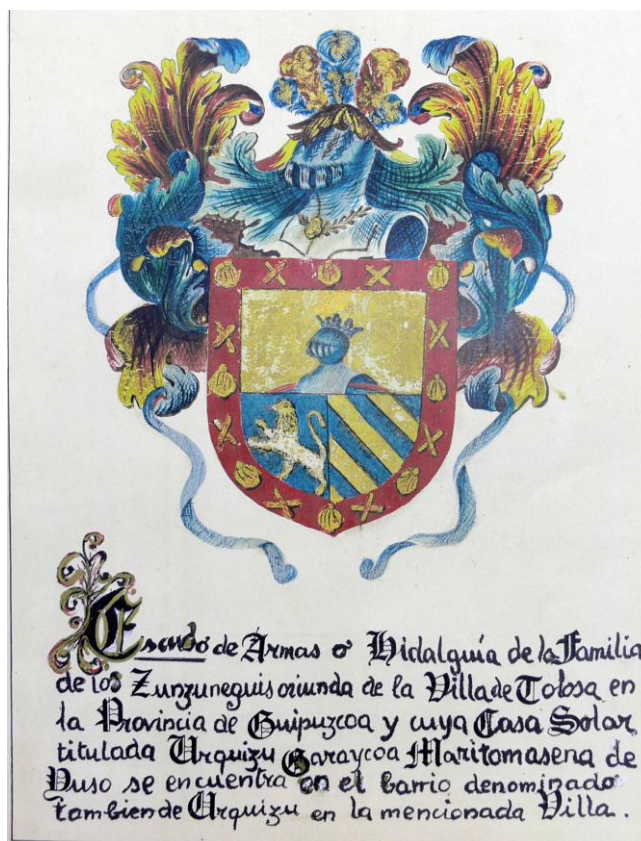 Escudo de Armas o Hidalguía de la Familia
de los Zunzuneguis oriunda de la Villa de Tolosa en
la Provincia de Guipuzcoa y cuya Casa Solar,
titulada Urquizu Garaycoa Maritomasena de
Yuso se encuentra en el barrio denominado
tambien de Urquizu en la mencionada Villa.